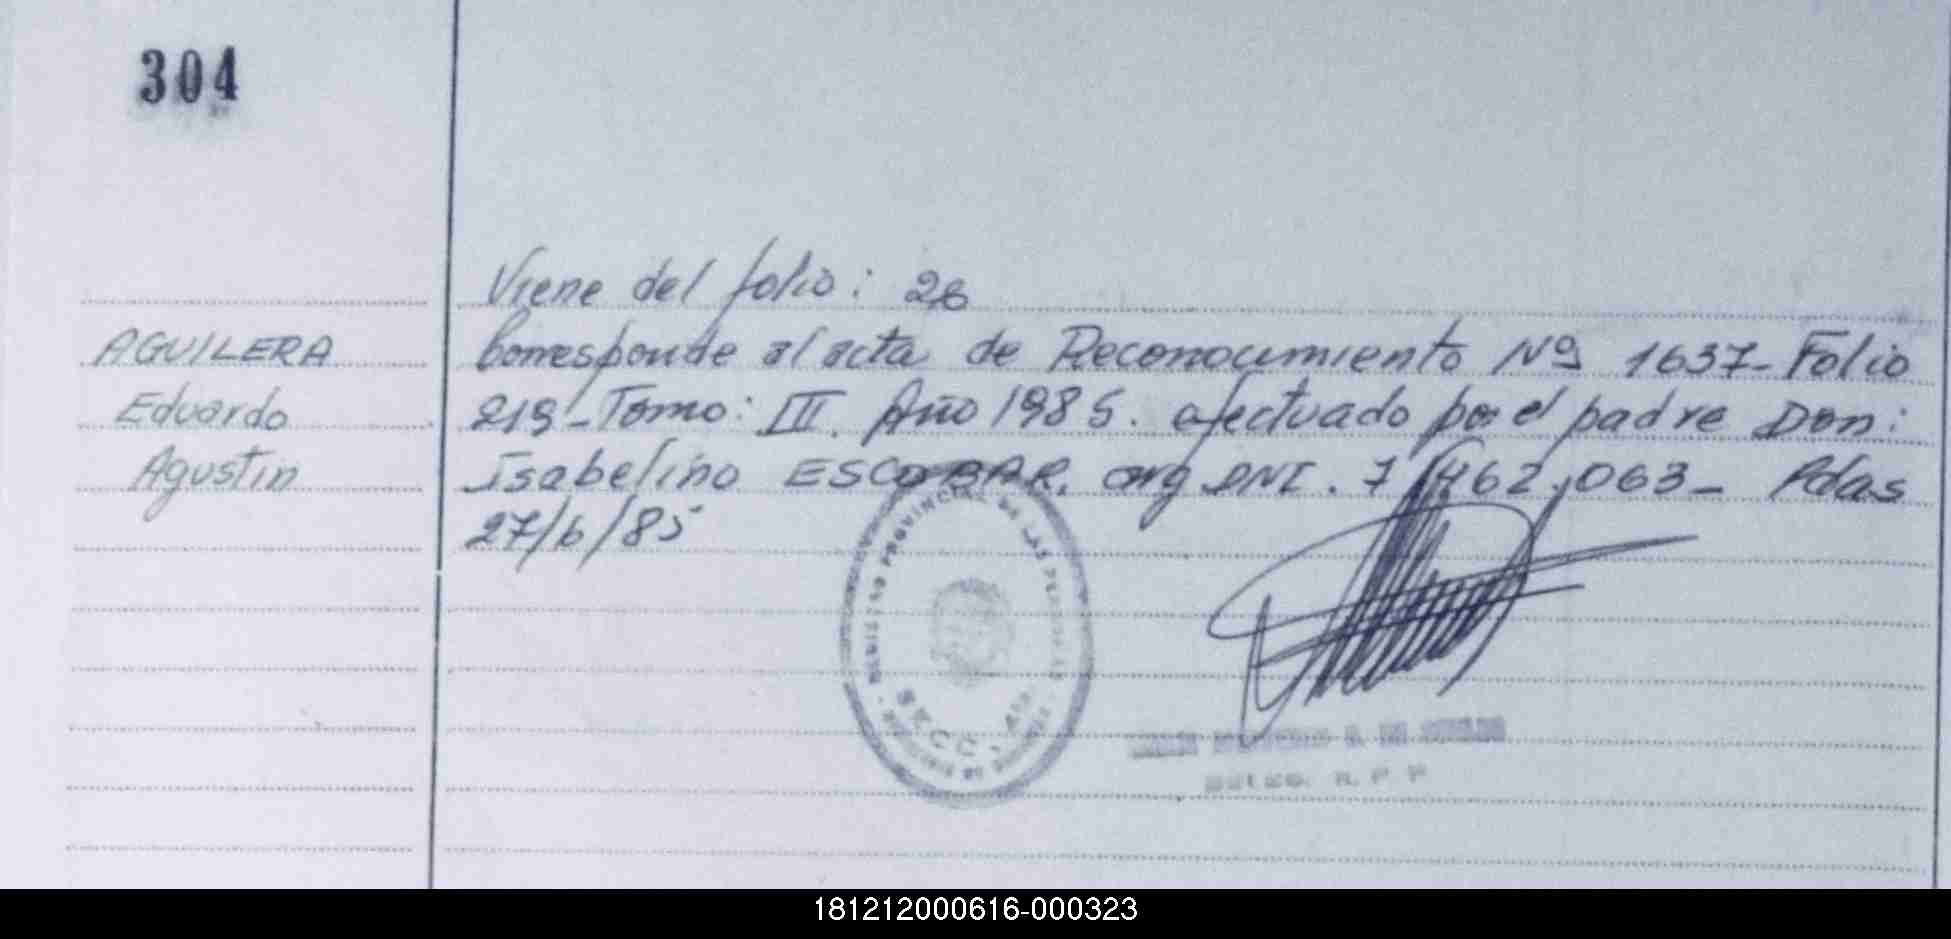 304
Viene del folio: 26
AGUILERA
Eduardo
Agustin
Corresponde al acta de Reconocimiento Nº 1637- Folio
219- Tomo: III. Año 1985. efectuado por el padre Don:
Isabelino ESCOBAR. arg DNI. 7.462.063- Pdas
27/6/85
REGISTRO PROVINCIAL DE LAS PERSONAS
SECC.
DELEG. R. P. P
181212000616-000323